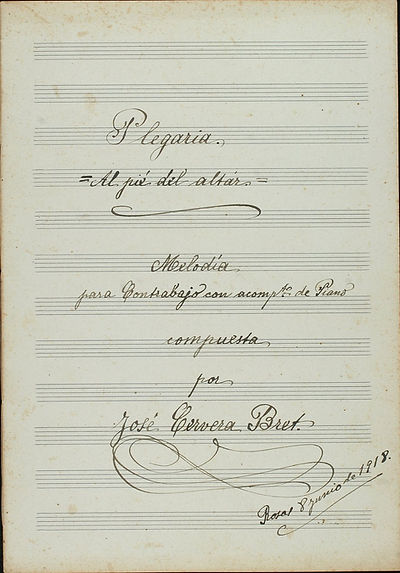 Plegaria.
=Al pié del altar.=
Melodía
para Contrabajo con acompto. de Piano
compuesta
por
José Cervera Bret.
Rosas 8 junio de 1918.